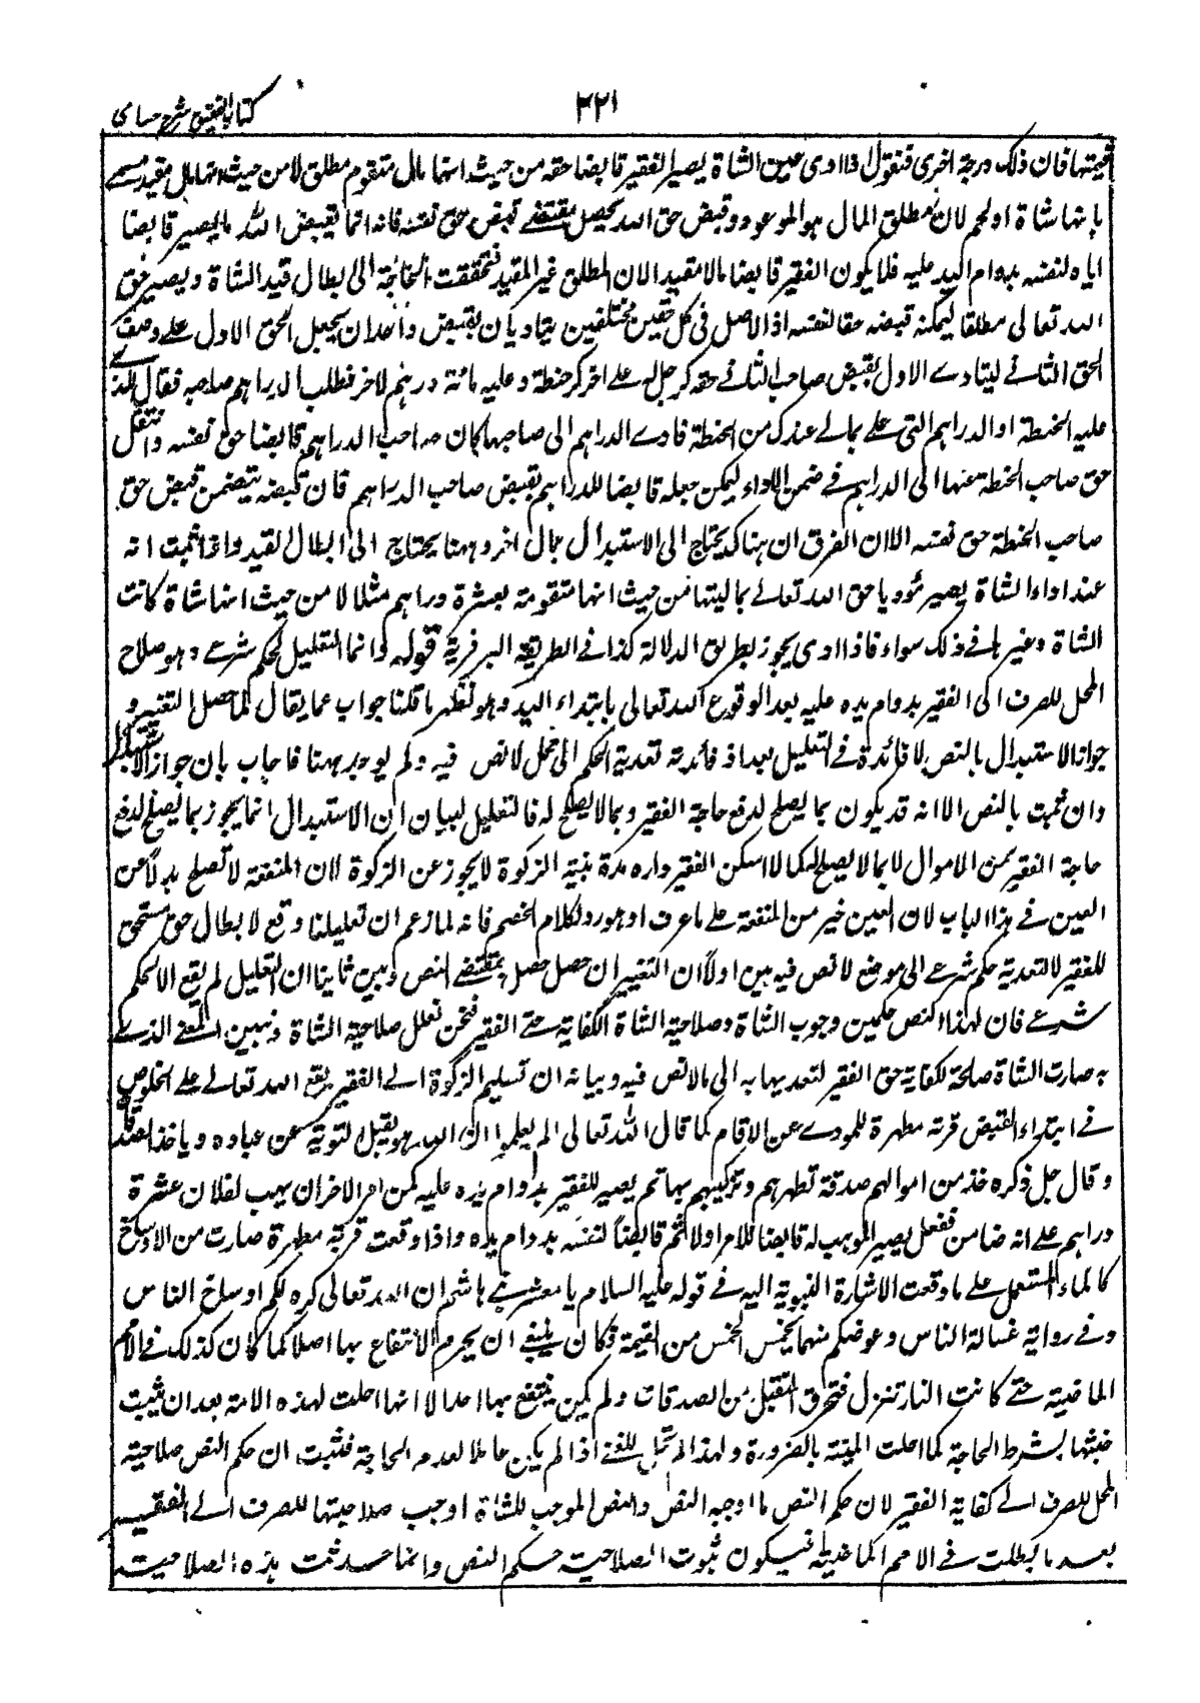 ٣٢١
كتاب التحقيق شرح حسامى
قيمتها فان ذلك درجة اخرى فنقول اذا ادى عين الشاة يصير الفقير قابضا حقه من حيث انها مال متقوم مطلق لا من حيث انها مال مقيد مسمى
بانها شاة او لحم لان مطلق المال هو الموعود وقبض حق الله يحصل بمقتضى قبض حق نفسه فانه انما يقبض لله ما يصير قابضا
اياه لنفسه بدوام اليد عليه فلا يكون الفقير قابضا مالا مقيدا لان المطلق غير المقيد فتحققت الحاجة الى ابطال قيد الشاة ويصير حق
الله تعالى مطلقا ليمكنه قبضه حقا لنفسه اذ الاصل فى كل حقين مختلفين يتاديان بقبض واحد ان يجعل الحق الاول على وصف
الحق الثانى ليتادى الاول بقبض صاحب الثانى حقه كرجل له على اخر كر حنطة وعليه مائة درهم لاخر فطلب الدراهم صاحبه فقال للذى
عليه الحنطة اد الدراهم التى على بمالى عندك من الحنطة فادى الدراهم الى صاحبها كان صاحب الدراهم قابضا حق نفسه وانتقل
حق صاحب الحنطة منها الى الدراهم فى ضمن الاداء ليمكن جعله قابضا للدراهم بقبض صاحب الدراهم فان قبضه يتضمن قبض حق
صاحب الحنطة حق نفسه الا ان الفرق ان هناك يحتاج الى الاستبدال بمال اخر وههنا يحتاج الى ابطال القيد واذا ثبت انه
عند اداء الشاة يصير مؤديا حق الله تعالى بماليتها من حيث انها متقومة بعشرة دراهم مثلا لا من حيث انها شاة كانت
الشاة وغيرها فى ذلك سواء فاذا ادى يجوز بطريق الدلالة كذا فى الطريقة البرغرية قوله وانما التعليل لحكم شرعى وهو صلاح
المحل للصرف الى الفقير بدوام يده عليه بعد الوقوع لله تعالى بابتداء اليد وهو نظير ما قلنا جواب عما يقال لما حصل التغيير و
جواز الاستبدال بالنص لا فائدة فى التعليل بعد اذ فائدته تعدية الحكم الى محل لا نص فيه ولم يوجد ههنا فاجاب بان جواز الاستبدال
وان ثبت بالنص الا انه قد يكون بما يصلح لدفع حاجة الفقير وبما لا يصلح له فالتعليل لبيان ان الاستبدال انما يجوز بما يصلح لدفع
حاجة الفقير من الاموال لا بما لا يصلح له كما لو اسكن الفقير داره مدة بنية الزكوة لا يجوز عن الزكوة لان المنفعة لا تصلح بدلا عن
العين فى هذا الباب لان العين خير من المنفعة على ما عرف او هو رد لكلام الخصم فانه لما زعم ان تعليلنا وقع لابطال حق مستحق
للفقير لا لتعدية حكم شرعى الى موضع لا نص فيه بين اولا ان التغيير ان حصل حصل بمقتضى النص وبين ثانيا ان التعليل لم يقع الا لحكم
شرعى فان لهذا النص حكمين وجوب الشاة وصلاحية الشاة لكفاية حق الفقير فنحن نعلل صلاحية الشاة ونبين المعنى الذى
به صارت الشاة صالحة لكفاية حق الفقير لتعديها به الى ما لا نص فيه وبيانه ان تسليم الزكوة الى الفقير يقع لله تعالى على الخلوص
فى ابتداء القبض قربة مطهرة للمودى عن الاثام كما قال الله تعالى الم يعلموا ان الله هو يقبل التوبة عن عباده وياخذ الصدقات
وقال جل ذكره خذ من اموالهم صدقة تطهرهم وتزكيهم بها ثم يصير للفقير بدوام يده عليه كمن امر الاخر ان يهب لفلان عشرة
دراهم على انه ضامن ففعل يصير الموهب له قابضا للامر اولا ثم قابضا لنفسه بدوام يده واذا وقعت قربة مطهرة صارت من الاوساخ
كالماء المستعمل على ما وقعت الاشارة النبوية اليه فى قوله عليه السلام يا معشر بنى هاشم ان الله تعالى كره لكم اوساخ الناس
وفى رواية غسالة الناس وعوضكم منها بخمس الخمس من الغنيمة فكان ينبغى ان يحرم الانتفاع بها اصلا كما كان كذلك فى الامم
الماضية حتى كانت النار تنزل فتحرق المتقبل من الصدقات ولم يكن ينتفع بها احد الا انها احلت لهذه الامة بعد ان ثبت
خبثها بشرط الحاجة كما احلت الميتة بالضرورة ولهذا لم تحل للغنى اذا لم يكن عاملا لعدم الحاجة فثبت ان حكم النص صلاحية
المحل للصرف الى كفاية الفقير لان حكم النص ما اوجبه النص والنص الموجب للشاة اوجب صلاحيتها للصرف الى الفقير
بعد ما بطلت فى الامم الماضية فيكون ثبوت الصلاحية حكم النص وانما حدثت هذه الصلاحية